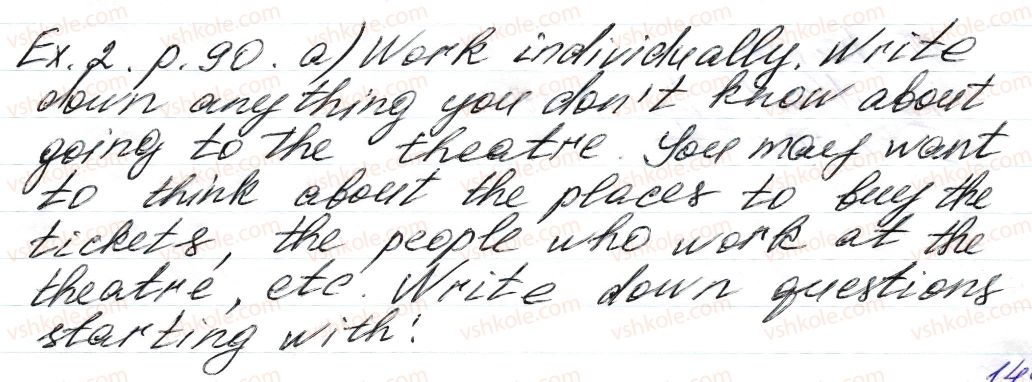 Ex. 2. p. 90. a) Work individually. Write
down anything you don't know about
going to the theatre. You may want
to think about the places to buy the
tickets, the people who work at the
theatre, etc. Write down questions
starting with:
14